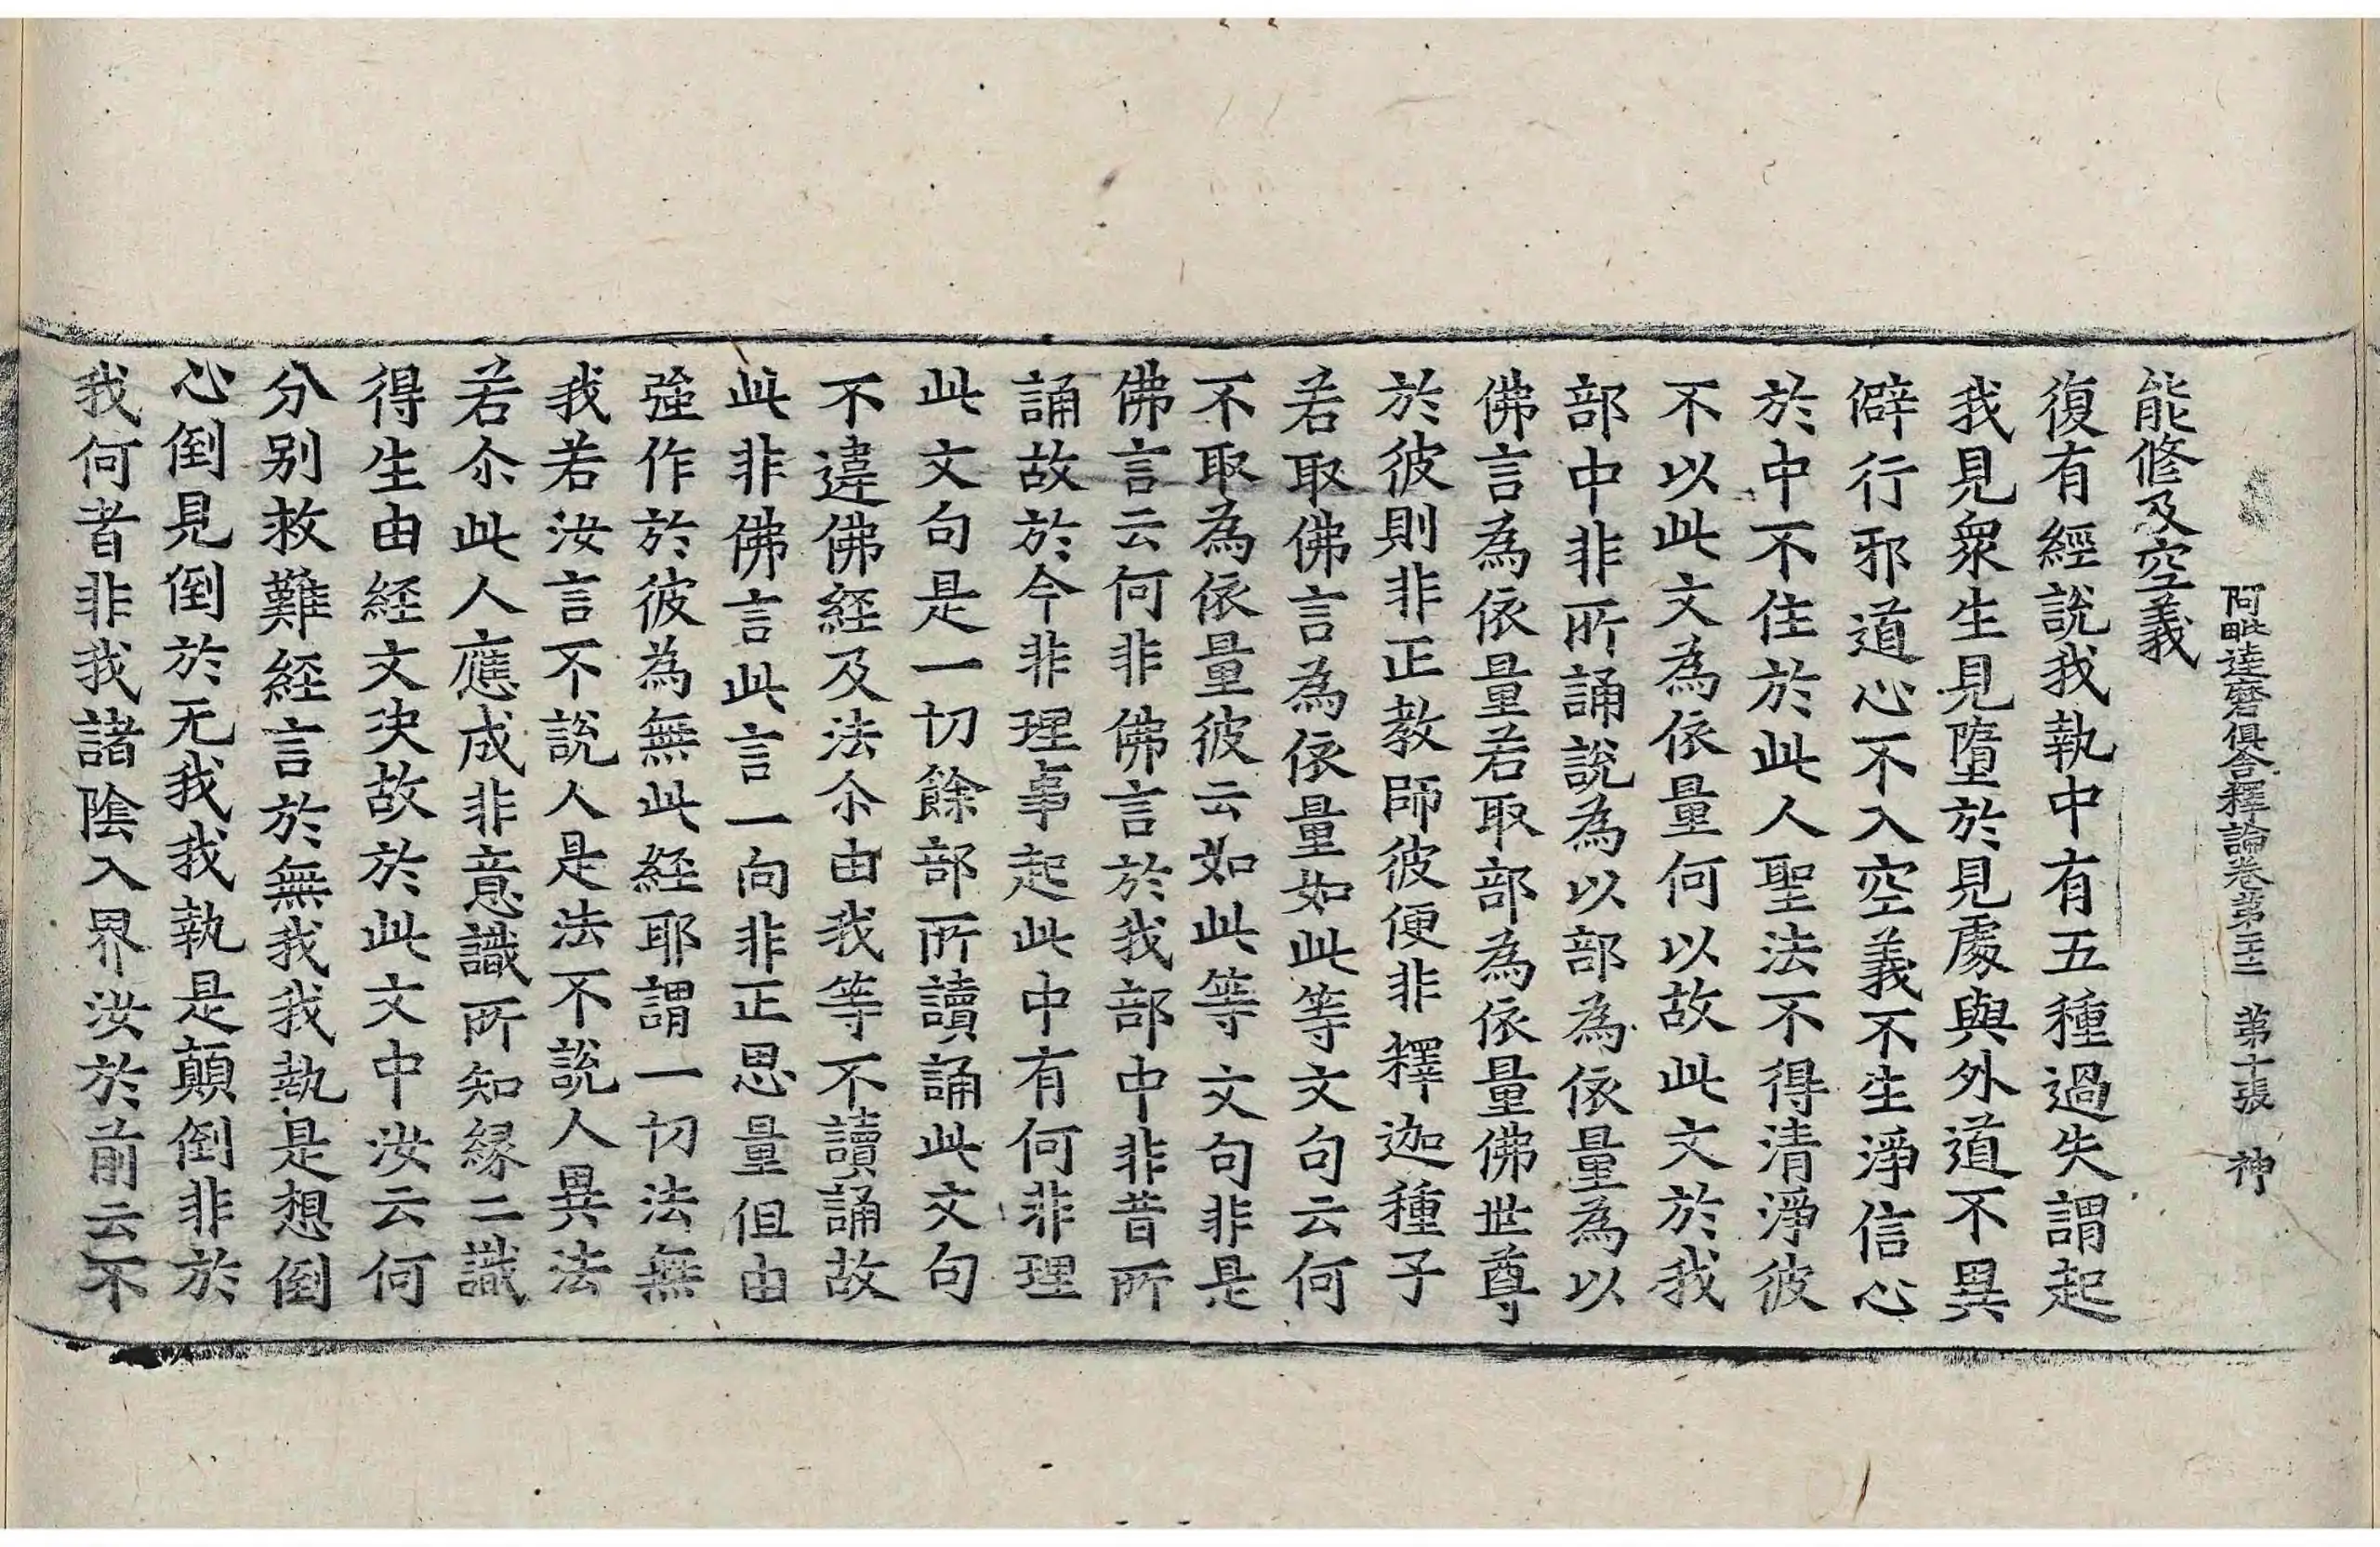 阿毗達磨俱舍釋論卷第二十二　第十張　神
能修及空義
復有經說我執中有五種過失謂起
我見衆生見墮於見處與外道不異
僻行邪道心不入空義不生淨信心
於中不住於此人聖法不得清淨彼
不以此文為依量何以故此文於我
部中非所誦說為以部為依量為以
佛言為依量若取部為依量佛世尊
於彼則非正教師彼便非釋迦種子
若取佛言為依量如此等文句云何
不取為依量彼云如此等文句非是
佛言云何非佛言於我部中非昔所
誦故於今非理事起此中有何非理
此文句是一切餘部所讀誦此文句
不違佛経及法尒由我等不讀誦故
此非佛言此言一向非正思量但由
強作於彼為無此経耶謂一切法無
我若汝言不說人是法不說人異法
若尒此人應成非意識所知緣二識
得生由経文決故於此文中汝云何
分别救難経言於無我我執是想倒
心倒見倒於无我我執是顛倒非於
我何者非我諸陰入界汝於前云不